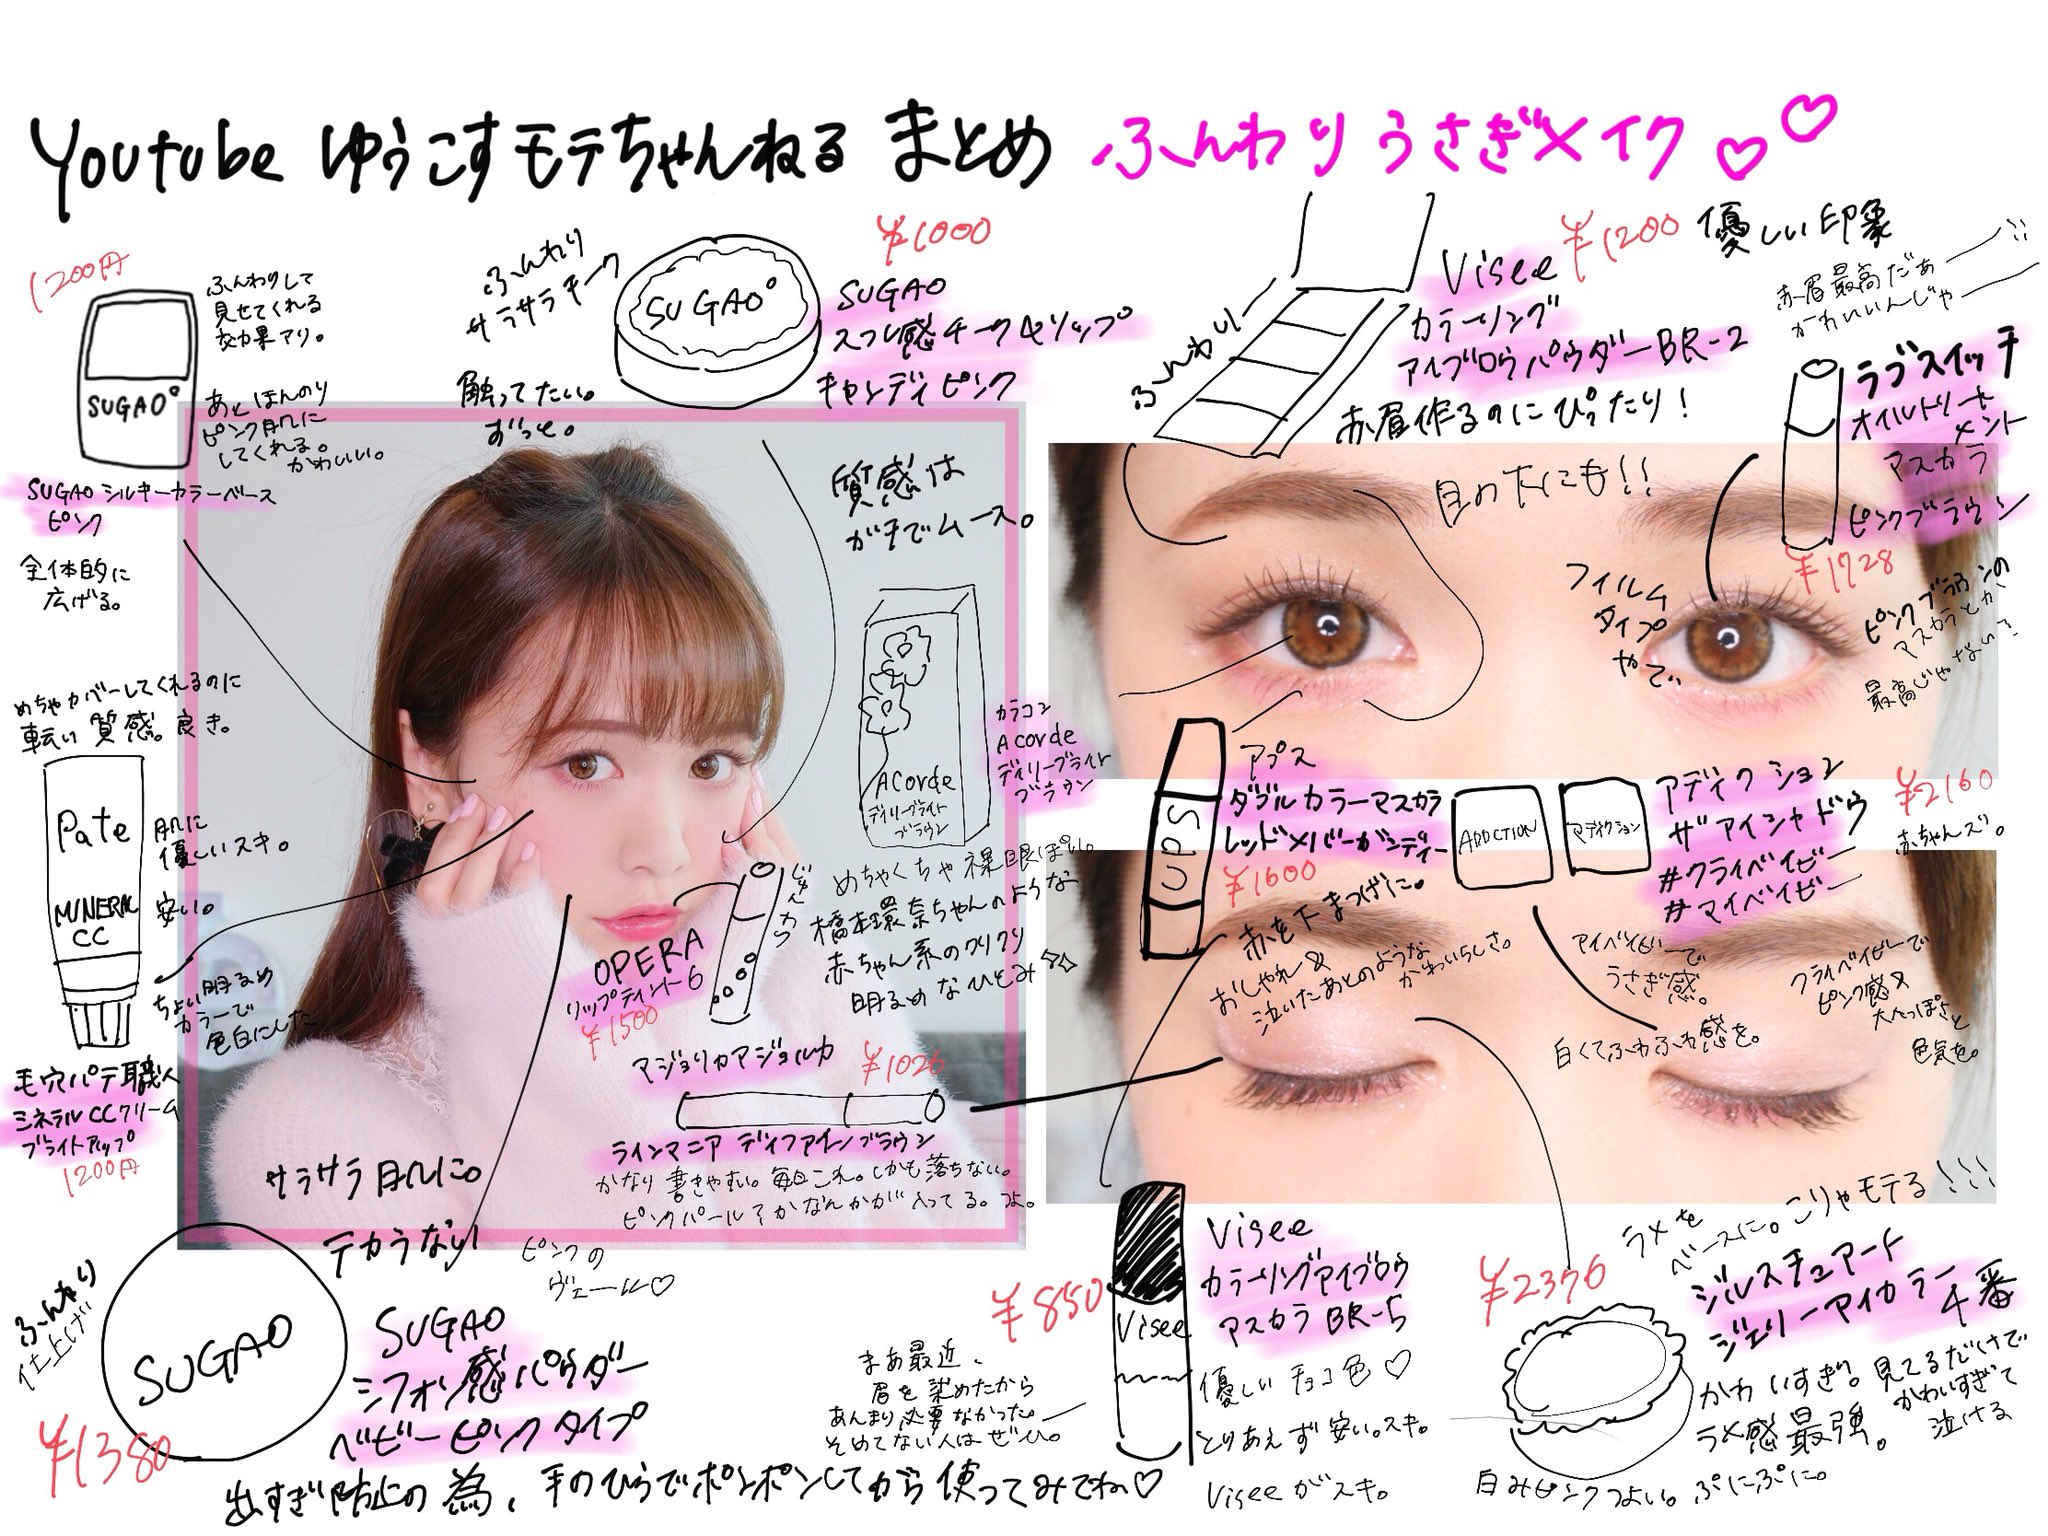 Youtube ゆうこすモテちゃんねる まとめ ふんわりうさぎメイク♡♡
1200円
ふんわりして
見せてくれる
効果アリ。
SUGAO
あとほんのり
ピンク肌に
してくれる。
かわいい。
SUGAO シルキーカラーベース
ピンク
全体的に
広げる。
ふんわり
サラサラチーク
触ってたい。
ずっと。
SUGAO
¥1000
SUGAO
スフレ感チーク&リップ
キャンディピンク
質感は
ガチでムース。
ふんわり
Visee
¥1200
カラーリング
アイブロウパウダーBR-2
赤眉作るのにぴったり!
優しい印象
赤眉最高だぁ
かわいいんじゃ
ラブスイッチ
オイルトリート
メント
マスカラ
ピンクブラウン
¥1728
ピンクブラウンの
マスカラとか、
最高じゃない?
目の下にも!!
フィルム
タイプ
やで
めちゃカバーしてくれるのに
軽い質感。良き。
Pate
MINERAL
CC
肌に
優しいスキ。
安い。
ちょい明るめ
カラーで
色白にした
毛穴パテ職人
ミネラルCCクリーム
ブライトアップ
1200円
Acorde
デイリーブライト
ブラウン
カラコン
Acorde
デイリーブライト
ブラウン
めちゃくちゃ裸眼ぽい。
橋本環奈ちゃんのような
赤ちゃん系のクリクリ
明るめなひとみ
じゅんわり
OPERA
リップティント6
¥1500
マジョリカマジョルカ
¥1026
ラインマニア ディファインブラウン
かなり書きやすい。毎日これ。しかも落ちない。
ピンクパール?かなんかが入ってる。
ups
アプス
ダブルカラーマスカラ
レッド×バーガンディー
¥1600
赤を下まつげに。
おしゃれ&
泣いたあとのような
かわいらしさ。
ADDCTION
アディクション
アディクション
ザアイシャドウ
#クライベイビー
#マイベイビー
¥2160
赤ちゃんズ。
アイベイビーで
うさぎ感。
白くてふわふわ感を。
クライベイビーで
ピンク感&
大人っぽさと
色気を。
サラサラ肌に。
テカらない
ピンクの
ヴェール♡
ふんわり
仕上げ
SUGAO
¥1380
SUGAO
シフォン感パウダー
ベビーピンクタイプ
出すぎ防止の為、手のひらでポンポンしてから使ってみてね♡
¥850
Visee
Visee
カラーリングアイブロウ
マスカラ BR-5
まあ最近、
眉を染めたから
あんまり必要なかった。
そめてない人はぜひ。
優しいチョコ色♡
とりあえず安い。スキ。
Viseeがスキ。
ラメを
ベースに。こりゃモテる!!!
¥2376
ジルスチュアート
ジェリーアイカラー
4番
かわいすぎ。見てるだけで
かわいすぎて
泣ける
ラメ感最強。
白みピンクつよい。ぷにぷに。